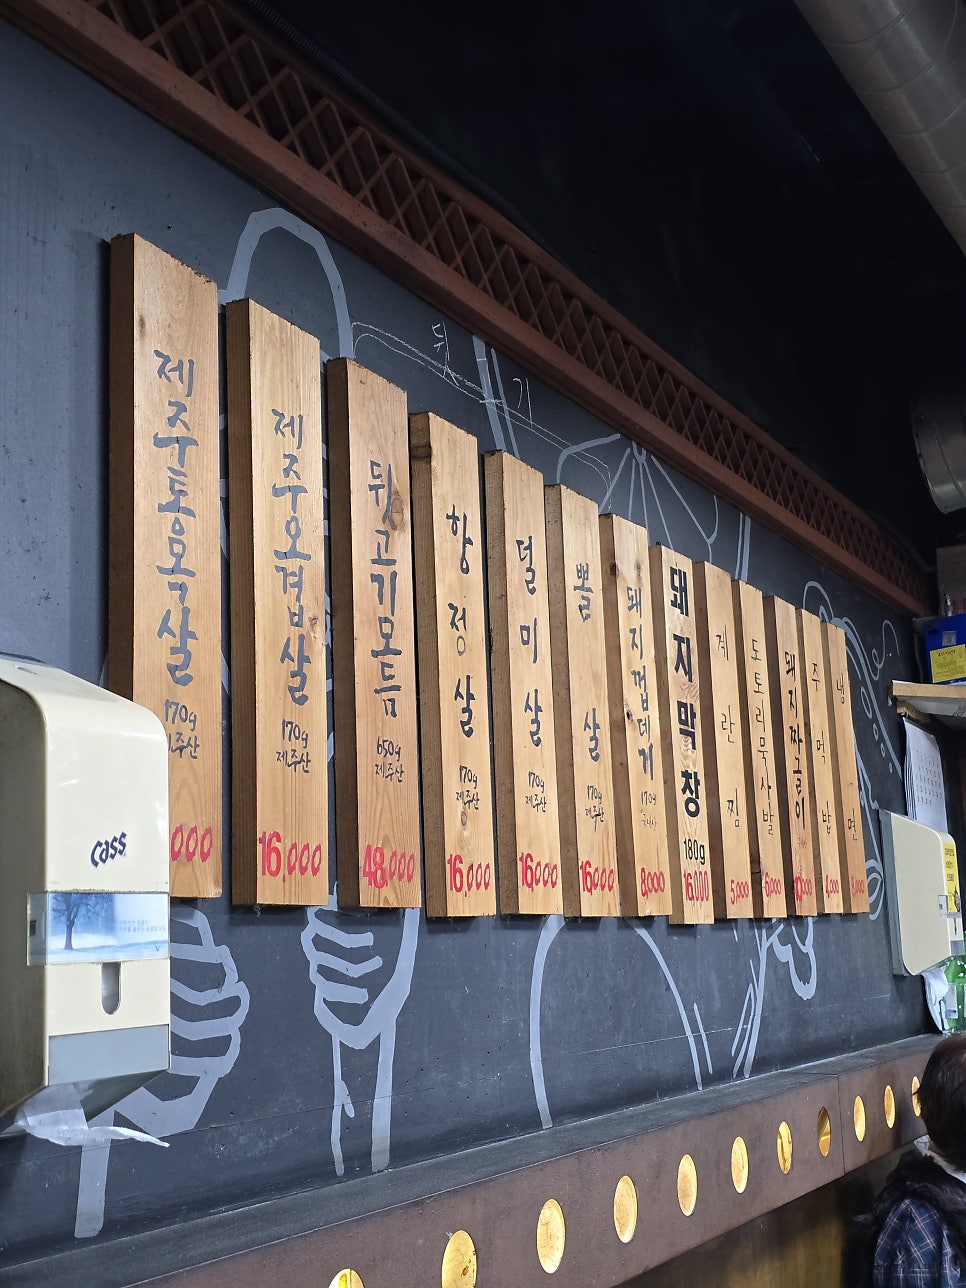 제주토목살
170g
제주산
000
제주오겹살
170g
제주산
16,000
뒷고기모듬
650g
제주산
48,000
항정살
170g
제주산
16,000
덜미살
170g
제주산
16,000
뽈살
170g
제주산
16,000
돼지껍데기
170g
국내산
8,000
돼지막창
180g
16,000
계란찜
5,000
도토리묵사발
6,000
돼지짜글이
주먹밥
냉면
뒷
기
Cass